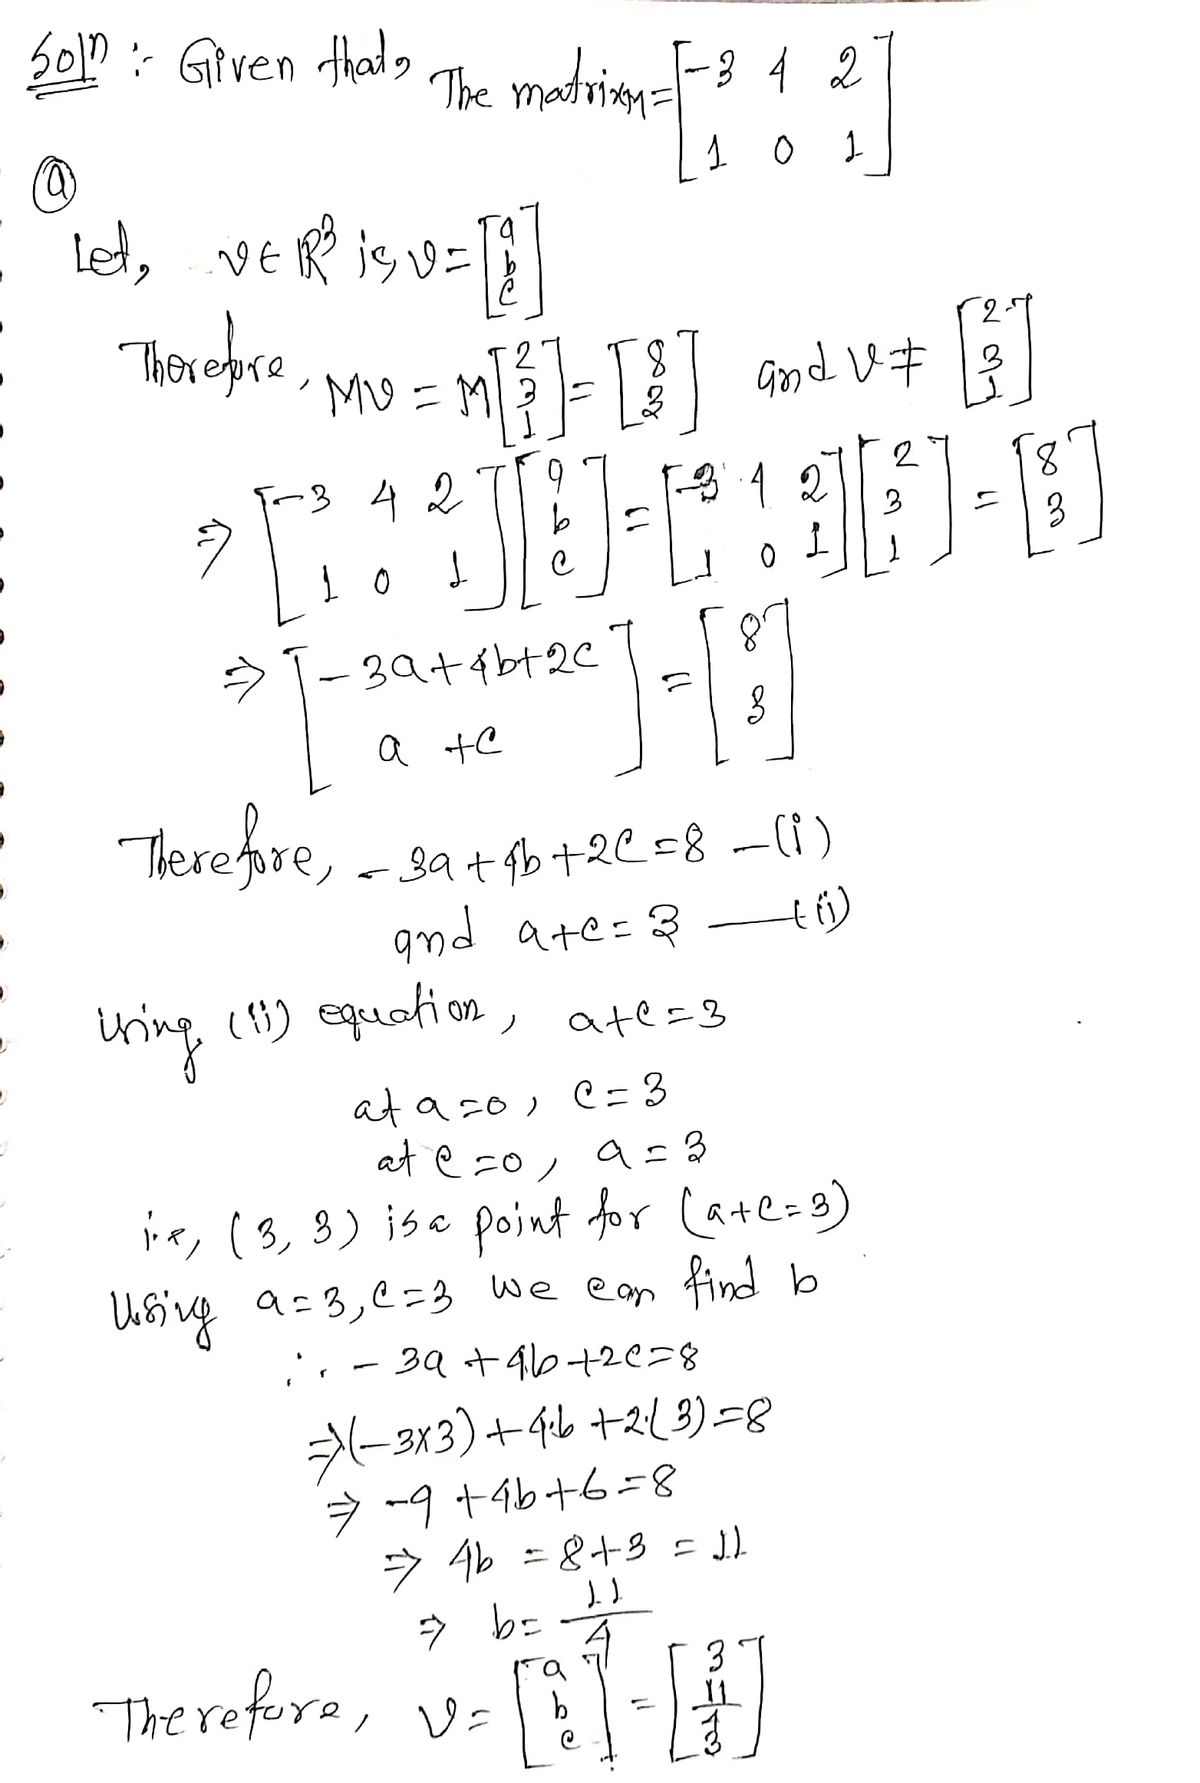 Soln :- Given that, The matrix M = [-3 4 2
1 0 1]
(a)
Let, v ∈ ℝ³ is v = [a b c]
Therefore, Mv = M[2 3 1] = [8 3] and v ≠ [2 3 1]
⇒ [-3 4 2 1 0 1] [a b c] = [-3 4 2 1 0 1] [2 3 1] = [8 3]
⇒ [-3a+4b+2c
a +c] = [8 3]
Therefore, -3a+4b+2c=8 —(i)
and a+c=3 —(ii)
Using (ii) equation, a+c=3
at a=0, c=3
at c=0, a=3
i.e, (3,3) is a point for (a+c=3)
Using a=3, c=3 we can find b
∴ -3a+4b+2c=8
⇒(-3×3)+4·b+2·(3)=8
⇒ -9+4b+6=8
⇒ 4b = 8+3 = 11
⇒ b= 11/4
Therefore, v = [a b c] = [3 11/4 3]